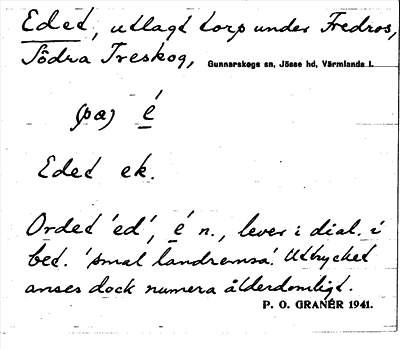 Edet, utlagt torp under Fredros,
Södra Treskog, Gunnarskogs sn, Jösse hd, Värmlands l.
(på) é
Edet ek.
Ordet 'ed', é n., lever i dial. i
bet. 'smal landremsa'. Uttrycket
anses dock numera ålderdomligt.
P. O. GRANÉR 1941.